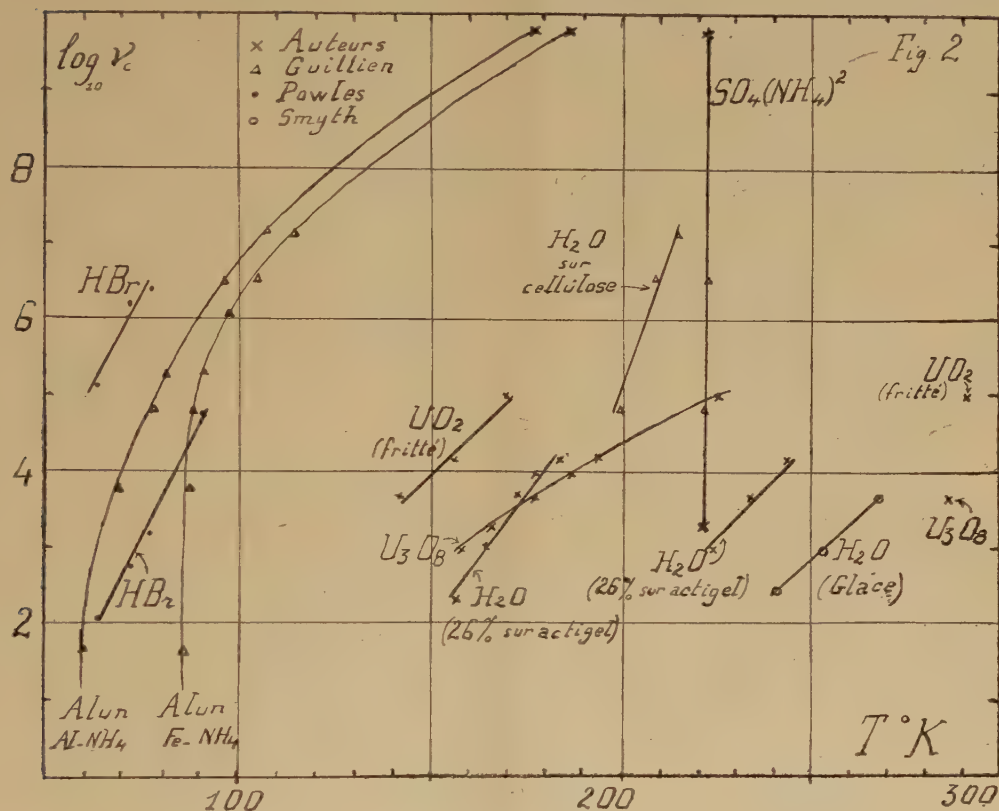 log₁₀ νc
× Auteurs
△ Guillien
• Powles
○ Smyth
Fig. 2
SO₄(NH₄)²
8
H₂O
sur
cellulose
HBr
6
UO₂
(fritté)
UO₂
(fritté)
4
U₃O₈
U₃O₈
H₂O
(26% sur actigel)
H₂O*)
(26% sur actigel)
H₂O
(Glace)
HBr
2
Alun
Al-NH₄
Alun
Fe-NH₄
T°K
100
200
300